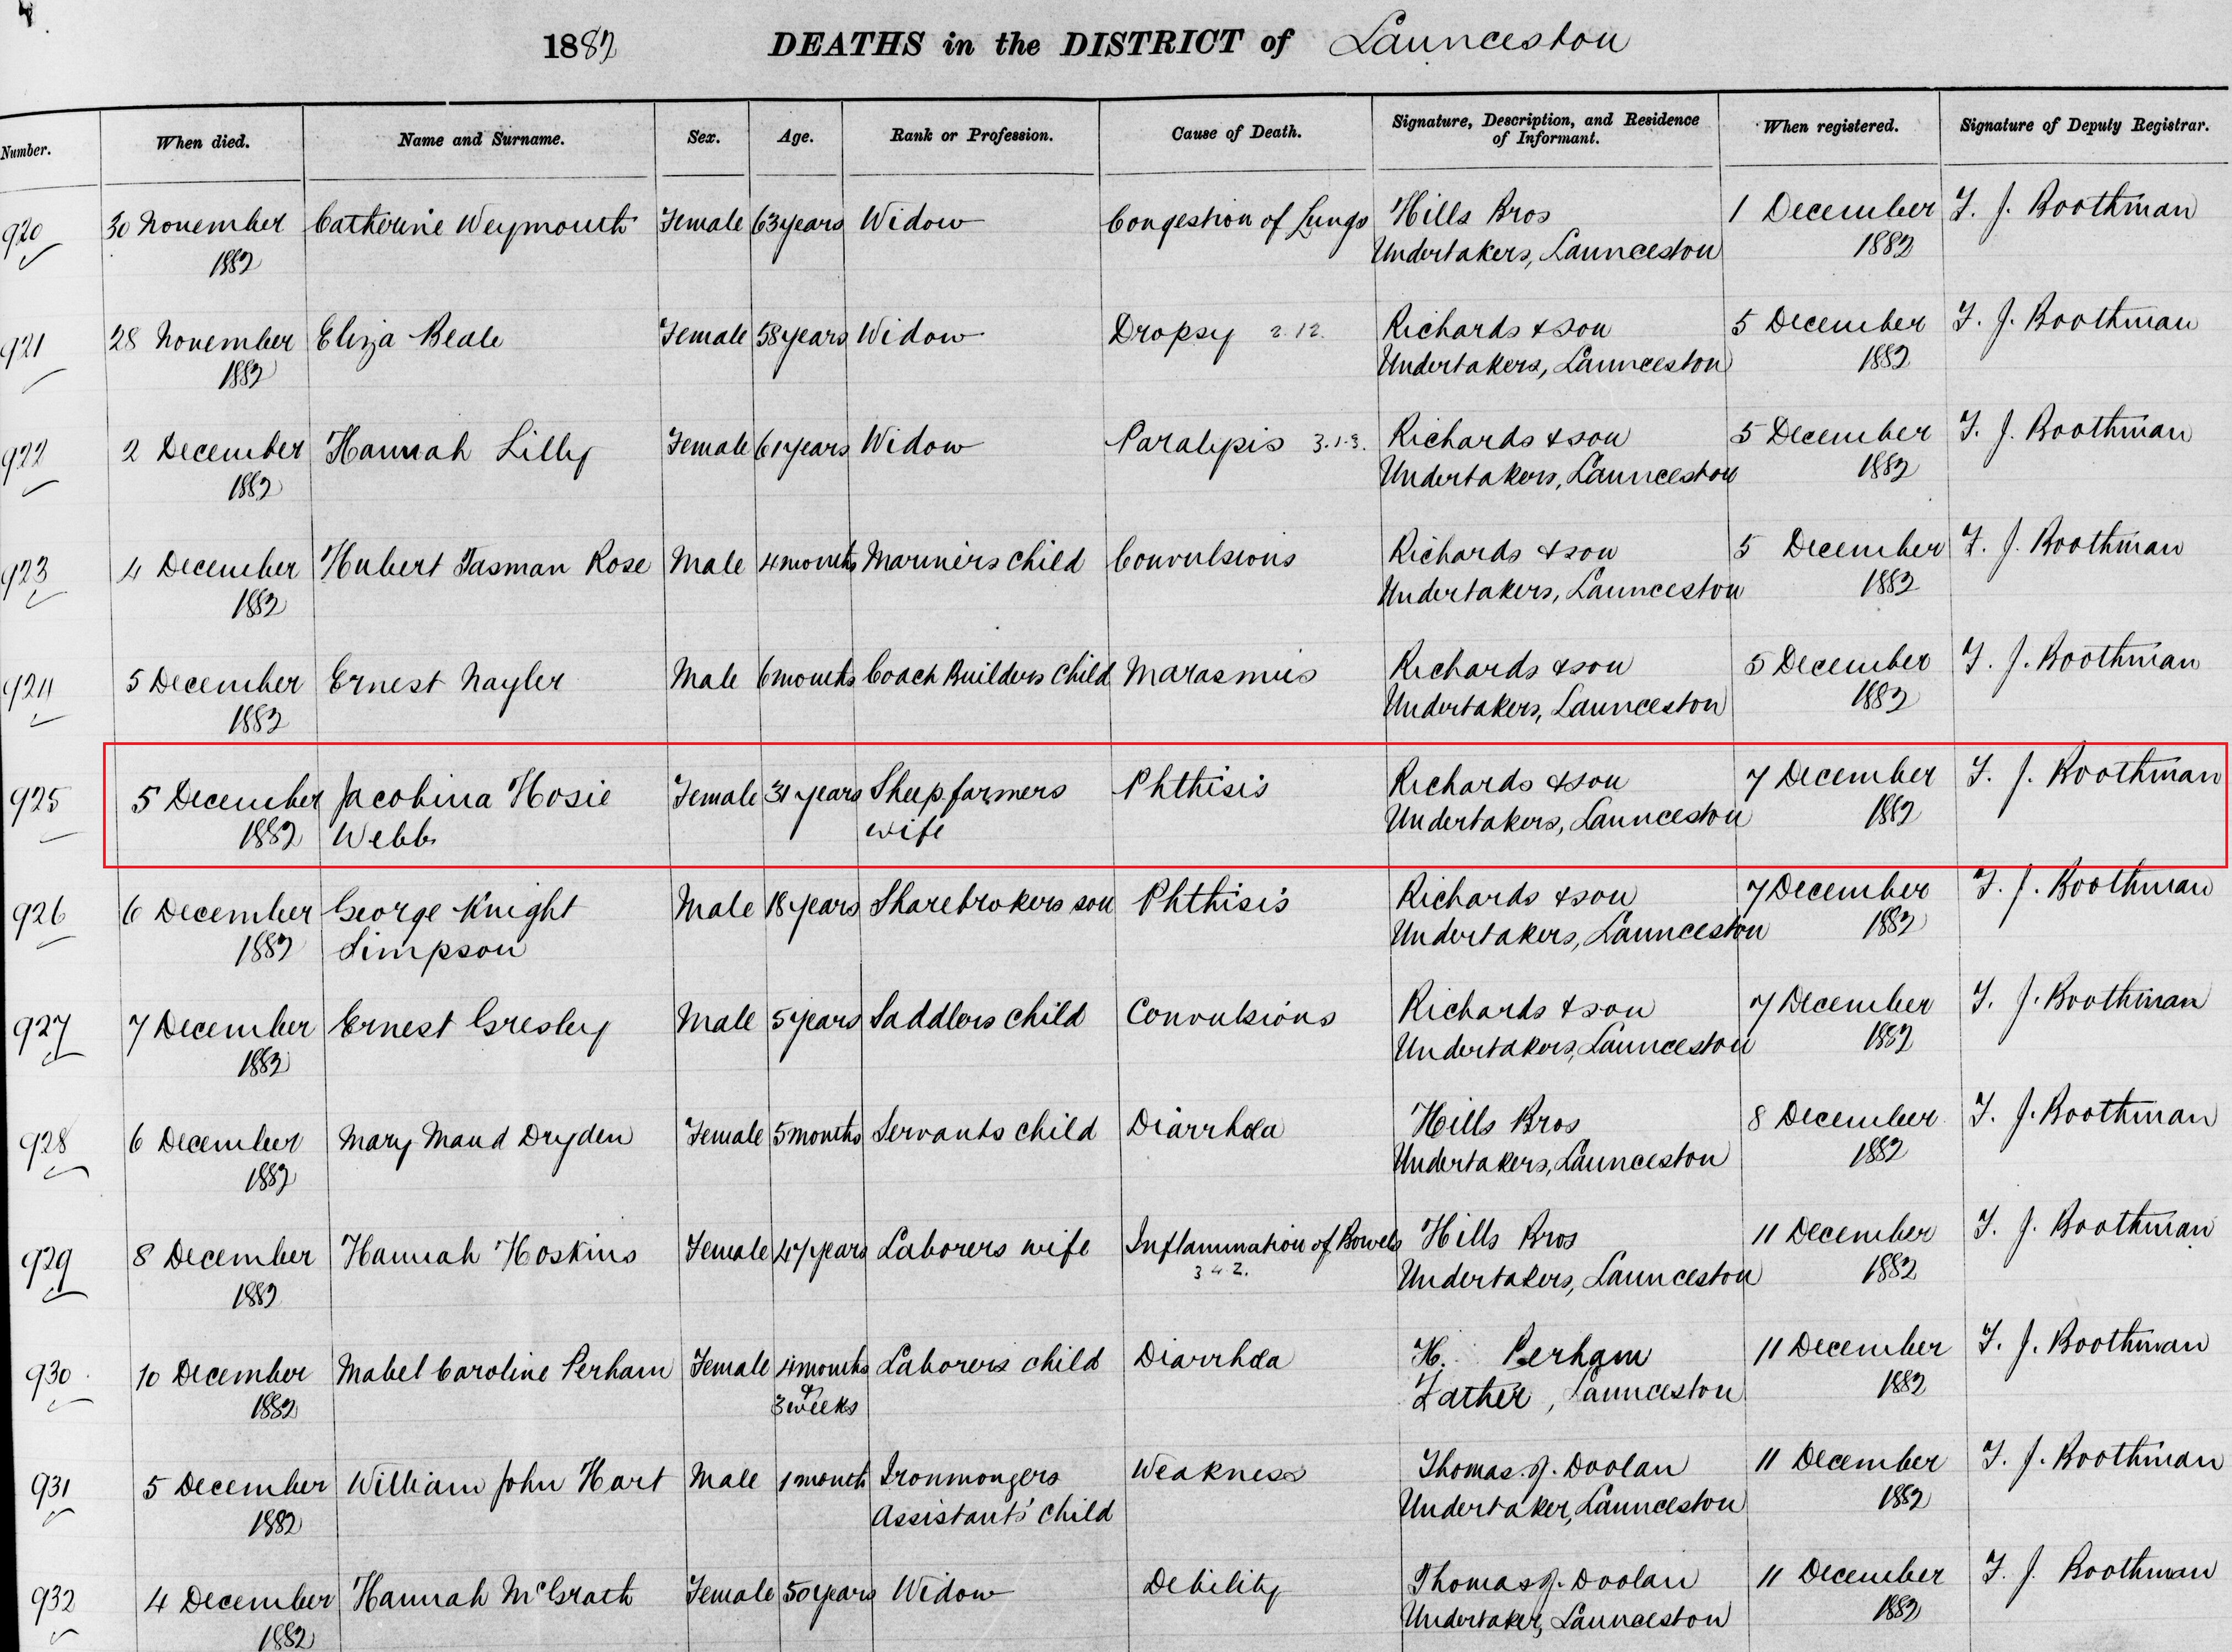 1882 DEATHS in the DISTRICT of Launceston
Number. When died. Name and Surname. Sex. Age. Rank or Profession. Cause of Death. Signature, Description, and Residence of Informant. When registered. Signature of Deputy Registrar.
920 30 November Catherine Weymouth Female 63 years Widow Congestion of Lungs Hills Bros 1 December F. J. Boothman
1882 Undertakers, Launceston 1882
921 28 November Eliza Beale Female 58 years Widow Dropsy 2.12. Richards & son 5 December F. J. Boothman
1882 Undertakers, Launceston 1882
922 2 December Hannah Lilly Female 61 years Widow Paralysis 3.1.3. Richards & son 5 December F. J. Boothman
1882 Undertakers, Launceston 1882
923 4 December Hubert Tasman Rose Male 4 months Mariners child Convulsions Richards & son 5 December F. J. Boothman
1882 Undertakers, Launceston 1882
924 5 December Ernest Nayler Male 6 months Coach Builders child Marasmus Richards & son 5 December F. J. Boothman
1882 Undertakers, Launceston 1882
925 5 December Jacobina Hosie Female 31 years Sheepfarmers Phthisis Richards & son 7 December F. J. Boothman
1882 Webb wife Undertakers, Launceston 1882
926 6 December George Knight Male 18 years Sharebrokers son Phthisis Richards & son 7 December F. J. Boothman
1882 Simpson Undertakers, Launceston 1882
927 7 December Ernest Gresley Male 5 years Saddlers child Convulsions Richards & son 7 December F. J. Boothman
1882 Undertakers, Launceston 1882
928 6 December Mary Maud Dryden Female 5 months Servants child Diarrhœa Hills Bros 8 December F. J. Boothman
1882 Undertakers, Launceston 1882
929 8 December Hannah Hoskins Female 47 years Laborers wife Inflammation of Bowels Hills Bros 11 December F. J. Boothman
1882 342. Undertakers, Launceston 1882
930 10 December Mabel Caroline Perham Female 4 months Laborers child Diarrhœa H. Perham 11 December F. J. Boothman
1882 & 3 weeks Father, Launceston 1882
931 5 December William John Hart Male 1 month Ironmongers Weakness Thomas. J. Doolan 11 December F. J. Boothman
1882 Assistants' child Undertaker, Launceston 1882
932 4 December Hannah McGrath Female 50 years Widow Debility Thomas J. Doolan 11 December F. J. Boothman
1882 Undertaker, Launceston 1882